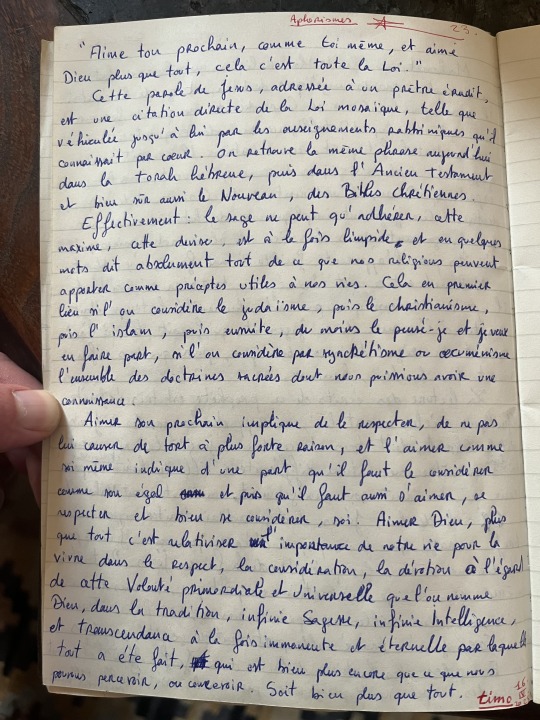 Aphorismes 23.
"Aime ton prochain, comme toi même, et aime
Dieu plus que tout, cela c'est toute la Loi."
Cette parole de Jesus, adressée à un prêtre érudit,
est une citation directe de la Loi mosaïque, telle que
véhiculée jusqu'à lui par les enseignements rabbiniques qu'il
connaissait par cœur. On retrouve la même phrase aujourd'hui
dans la Torah hébreue, puis dans l'Ancien Testament
et bien sûr aussi le Nouveau, des Bibles chrétiennes.
Effectivement : le sage ne peut qu'adhérer, cette
maxime, cette devise, est à la fois limpide, et en quelques
mots dit absolument tout de ce que nos religions peuvent
apporter comme préceptes utiles à nos vies. Cela en premier
lieu si l'on considère le judaïsme, puis le christianisme,
puis l'islam, puis ensuite, du moins le pensé-je et je veux
en faire part, si l'on considère par synchrétisme ou œcuménisme
l'ensemble des doctrines sacrées dont nous puissions avoir une
connaissance.
Aimer son prochain implique de le respecter, de ne pas
lui causer de tort à plus forte raison, et l'aimer comme
soi même indique d'une part qu'il faut le considérer
comme son égal et puis qu'il faut aussi s'aimer, se
respecter et bien se considérer, soi. Aimer Dieu, plus
que tout c'est relativiser l'importance de notre vie pour la
vivre dans le respect, la considération, la dévotion à l'égard
de cette Volonté primordiale et Universelle que l'on nomme
Dieu, dans la tradition, infinie Sagesse, infinie Intelligence,
et Transcendance à la fois immanente et éternelle par laquelle
tout a été fait, qui est bien plus encore que ce que nous
pouvons percevoir, ou concevoir. Soit bien plus que tout. timo 16
IX